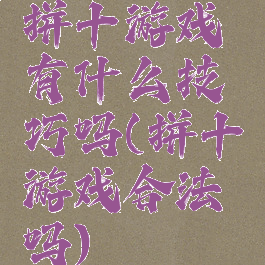 拼十游戏
有什么技
巧吗(拼十
游戏合法
吗)